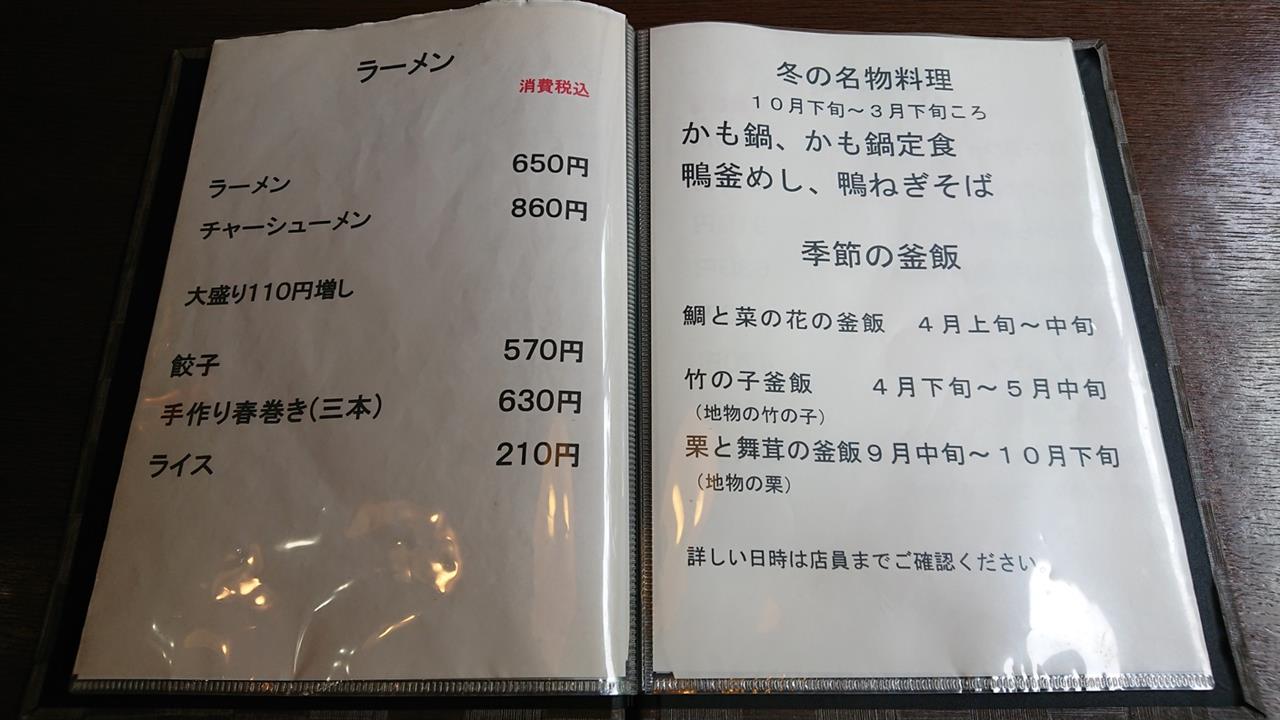 ラーメン
消費税込
ラーメン 650円
チャーシューメン 860円
大盛り110円増し
餃子 570円
手作り春巻き(三本) 630円
ライス 210円
冬の名物料理
10月下旬~3月下旬ころ
かも鍋、かも鍋定食
鴨釜めし、鴨ねぎそば
季節の釜飯
鯛と菜の花の釜飯 4月上旬~中旬
竹の子釜飯 4月下旬~5月中旬
(地物の竹の子)
栗と舞茸の釜飯9月中旬~10月下旬
(地物の栗)
詳しい日時は店員までご確認ください